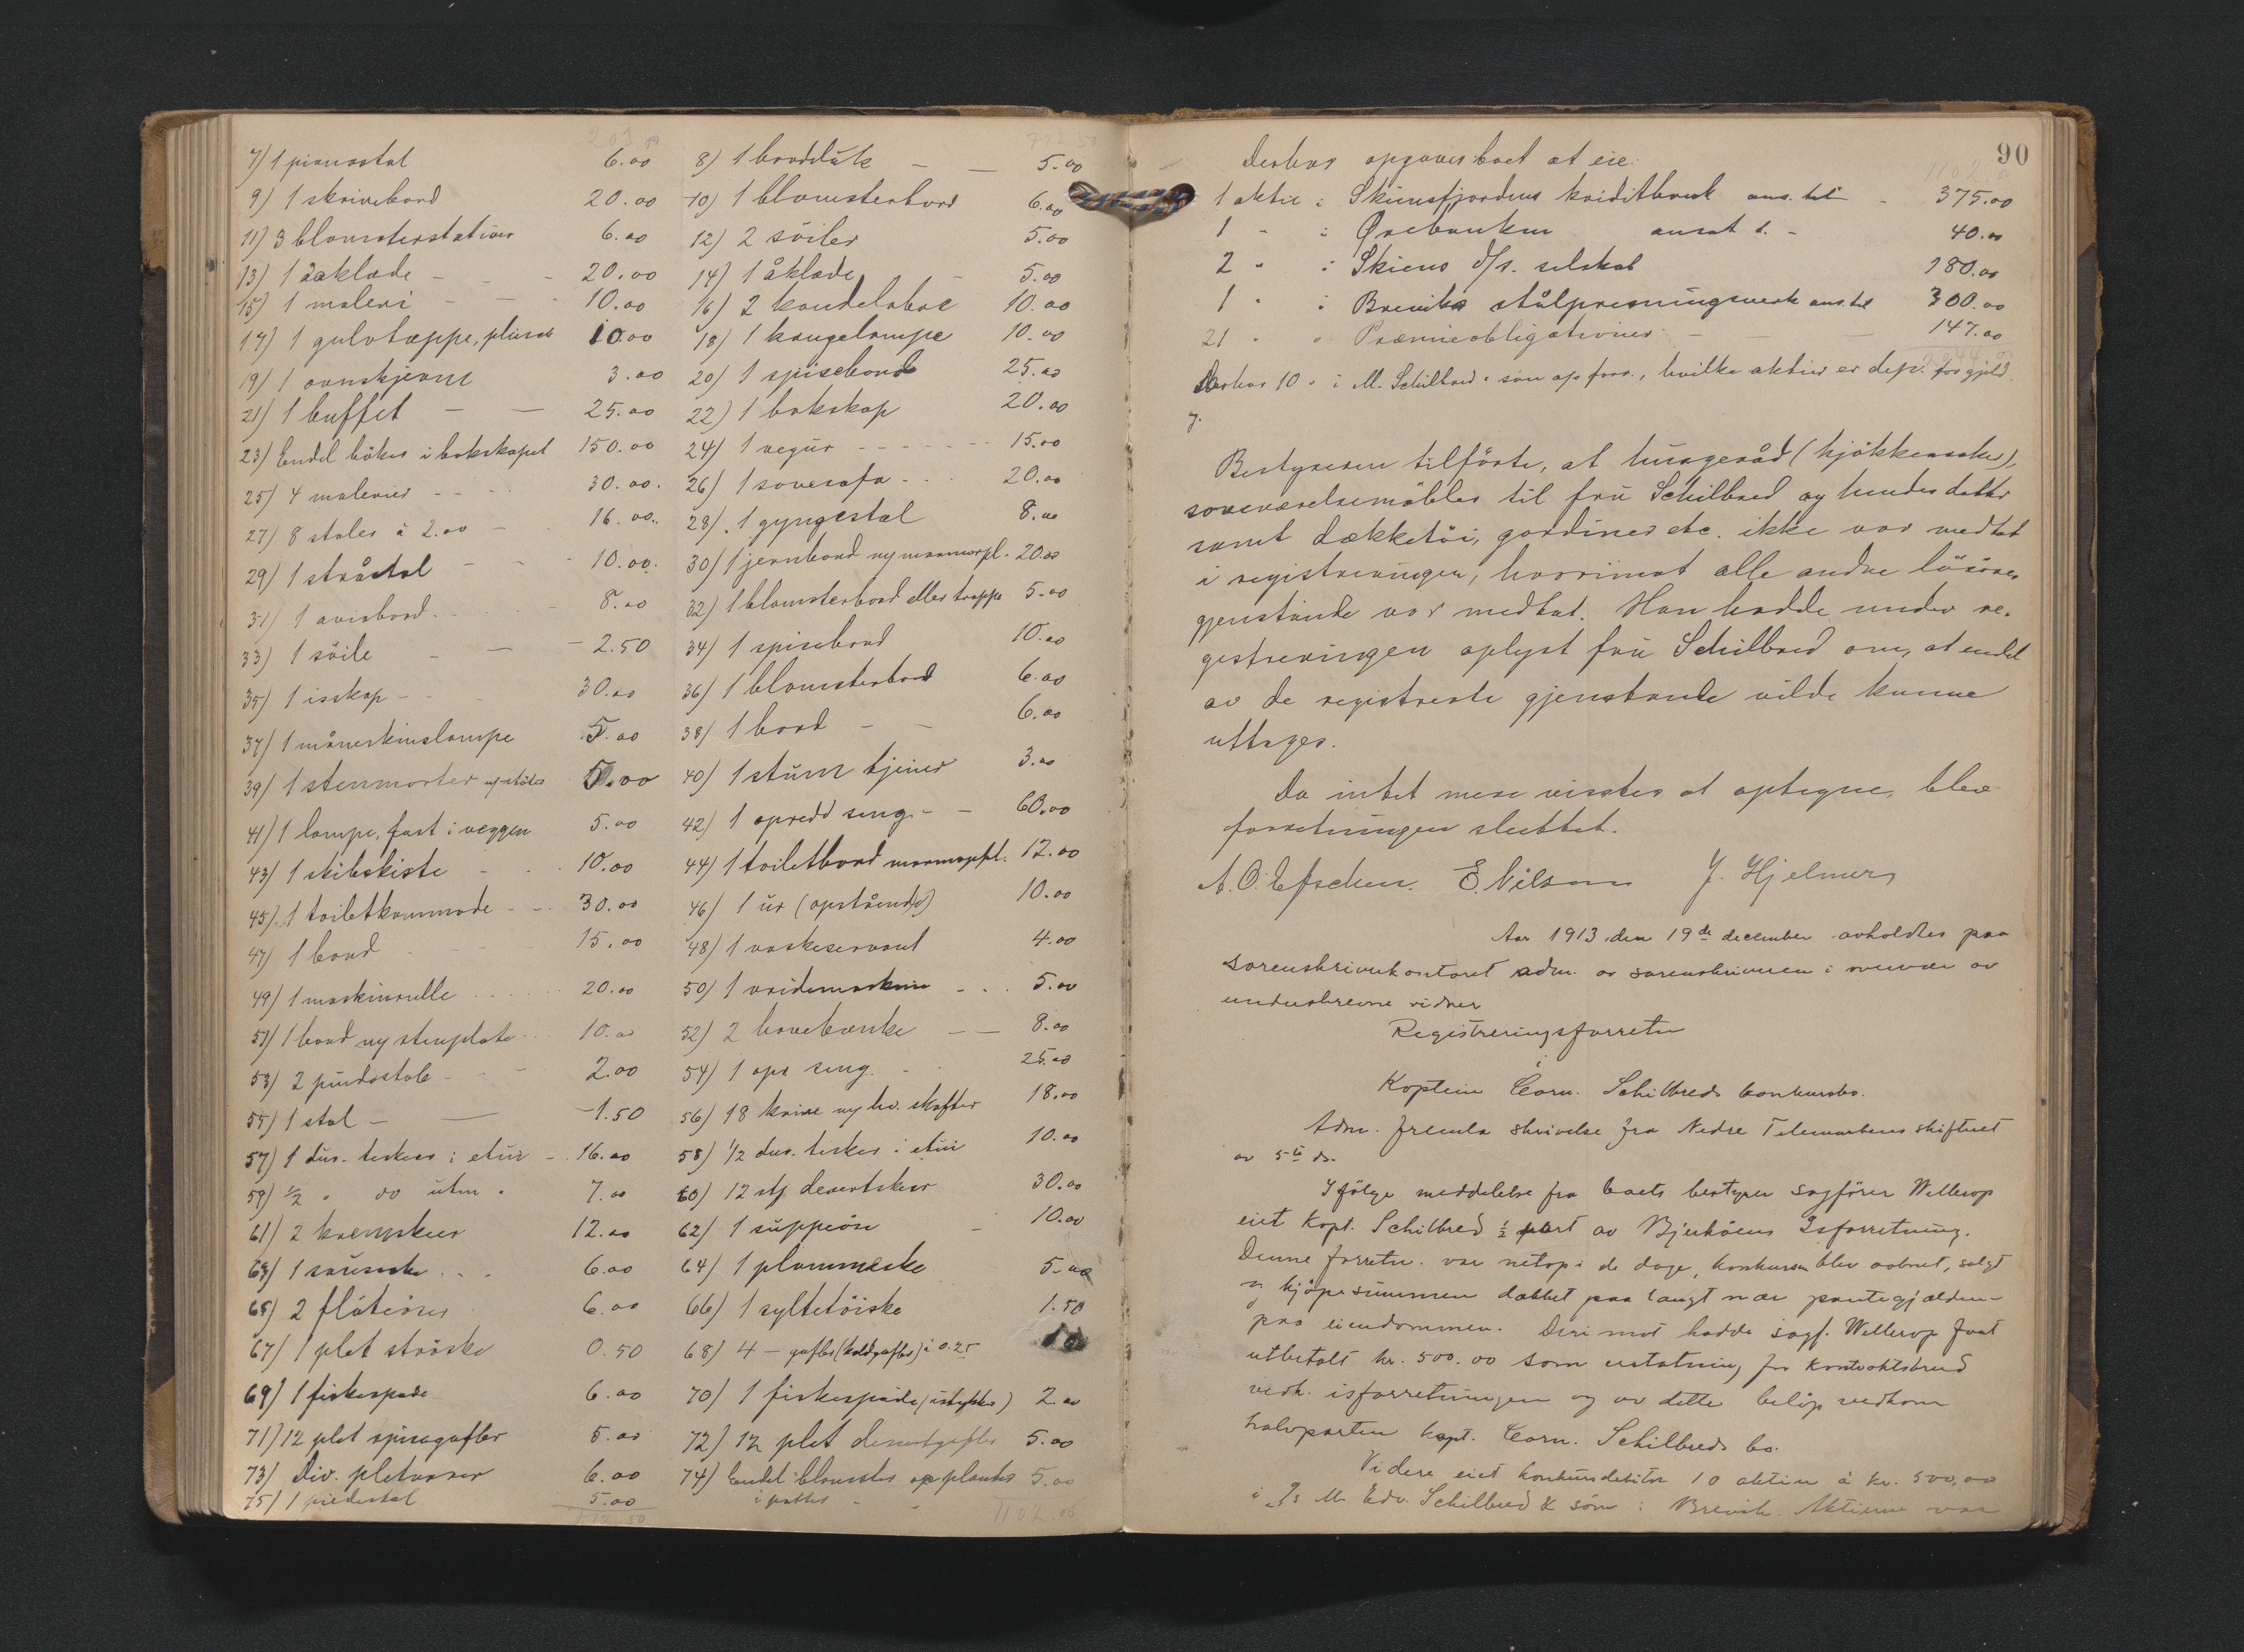 203.00 772.50
7) 1 pianostol 6.00 8) 1 bordduk 5.00
9) 1 skrivebord 20.00 10) 1 blomsterbord 6.00
11) 3 blomsterstativer 6.00 12) 2 söiler 5.00
13) 1 åklæde 20.00 14) 1 åklæde 5.00
15) 1 maleri 10.00 16) 2 kandelabre 10.00
17) 1 gulvtæppe, plüsch 10.00 18) 1 hængelampe 10.00
19) 1 ovnskjerm 3.00 20) 1 spisebord 25.00
21) 1 buffet 25.00 22) 1 bokskap 20.00
23) Endel böker i bokskapet 150.00 24) 1 vegur 15.00
25) 4 malerier 30.00 26) 1 sovesofa 20.00
27) 8 stoler à 2.00 16.00 28) 1 gyngestol 8.00
29) 1 stråstol 10.00 30) 1 jernbord m/ marmorpl. 20.00
31) 1 avisbord 8.00 32) 1 blomsterbord eller trappe 5.00
33) 1 söile 2.50 34) 1 spisebord 10.00
35) 1 isskap 30.00 36) 1 blomsterbord 6.00
37) 1 måneskinslampe 5.00 38) 1 bord 6.00
39) 1 stenmorter m/ stöter 5.00 40) 1 stum tjener 3.00
41) 1 lampe, fast i væggen 5.00 42) 1 opredd seng 60.00
43) 1 skibskiste 10.00 44) 1 toiletbord marmorpl. 12.00
45) 1 toiletkommode 30.00 46) 1 ur (opstående) 10.00
47) 1 bord 15.00 48) 1 vaskeservant 4.00
49) 1 maskinrulle 20.00 50) 1 vridemaskine 5.00
51) 1 bord m/ stenplate 10.00 52) 2 havebænke 8.00
53) 2 pindestole 2.00 54) 1 opr. seng 25.00
55) 1 stol 1.50 56) 18 knive m/ hv. skafter 18.00
57) 1 dus. teskeer i etui 16.00 58) 1/2 dus. teskeer i etui 10.00
59) 1/2 " do uten " 7.00 60) 12 stk desertskeer 30.00
61) 2 12.00 62) 1 suppeöse 10.00
63) 1 sauseske 6.00 64) 1 plommeske 5.00
65) 2 flöteöser 6.00 66) 1 syltetöiske 1.50
67) 1 plet ströske 0.50 68) 4 - gafler (koldgafler) à 0.25
69) 1 fiskespade 6.00 70) 1 fiskespade (istykker) 2.00
71) 12 plet spisegafler 5.00 72) 12 plet dessertgafler 5.00
73) Div. pletvarer 6.00 74) Endel blomster og planter 5.00
75) 1 piedestal 5.00 i potter
772.50 1102.00
90
Derhos opgaves boet at eie: 1102.00
1 aktie i Skiensfjordens kreditbank ans. til 375.00
1 " i Ørebanken ansat t. 40.00
2 " i Skiens d/s. selskab 180.00
1 " i Breviks stålpresningsverk ans. til 300.00
21 " " Præmieobligationer 147.00
Derhos 10 " i M. Schilbred & sön ap forr., hvilke aktier er dep. for gjeld.
Bestyreren tilförte, at husgeråd (kjökkensaker),
soveværelsemöbler til fru Schilbred og hendes datter
samt dækketöi, gardiner etc. ikke var medtat
i registreringen, hvorimot alle andre lösöre
gjenstande var medtat. Han hadde under re-
gistreringen oplyst fru Schilbred om, at endel
av de registrerte gjenstande vilde kunne
uttages.
Da intet mere visstes at optegne, blev
forretningen sluttet.
E. Nilsen J. Hjelmer
Aar 1913 den 19de december avholdtes paa
sorenskriverkontoret adm. av sorenskriveren i nærvær av
underskrevne vidner
Registreringsforretn
i
Kaptein Corn. Schilbreds konkursbo.
Adm. fremla skrivelse fra Nedre Telemarkens skifteret
av 5te ds.
Ifölge meddelelse fra boets bestyrer sagförer Wellerop
eiet Kapt. Schilbred 1/2 part av Bjerköens Isforretning.
Denne forretn. var netop i de dage, konkursen blev aabnet, solgt
og kjöpesummen dækket paa langt nær pantegjælden
paa eiendommen. Derimot hadde sagf. Wellerop faat
utbetalt kr. 500.00 som erstatning for kontraktsbrud
vedk. isforretningen og av dette belöp vedkom
halvparten kapt. Corn. Schilbreds bo.
Videre eiet konkursdebitor 10 aktier à kr. 500,00
i As M. Edv. Schilbred & sön i Brevik. Aktierne var